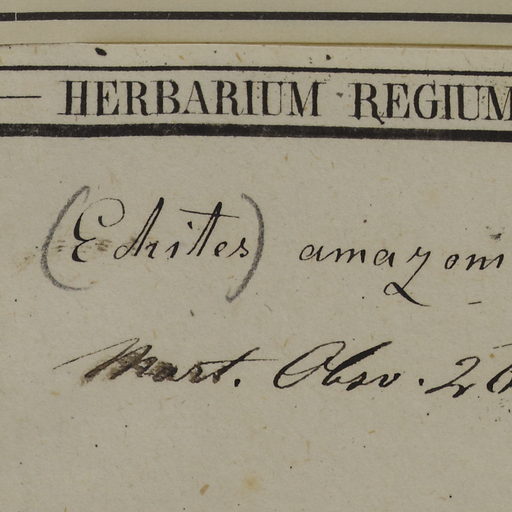 — HERBARIUM REGIUM
(Echites) amazoni
Mart. Obsv. 2